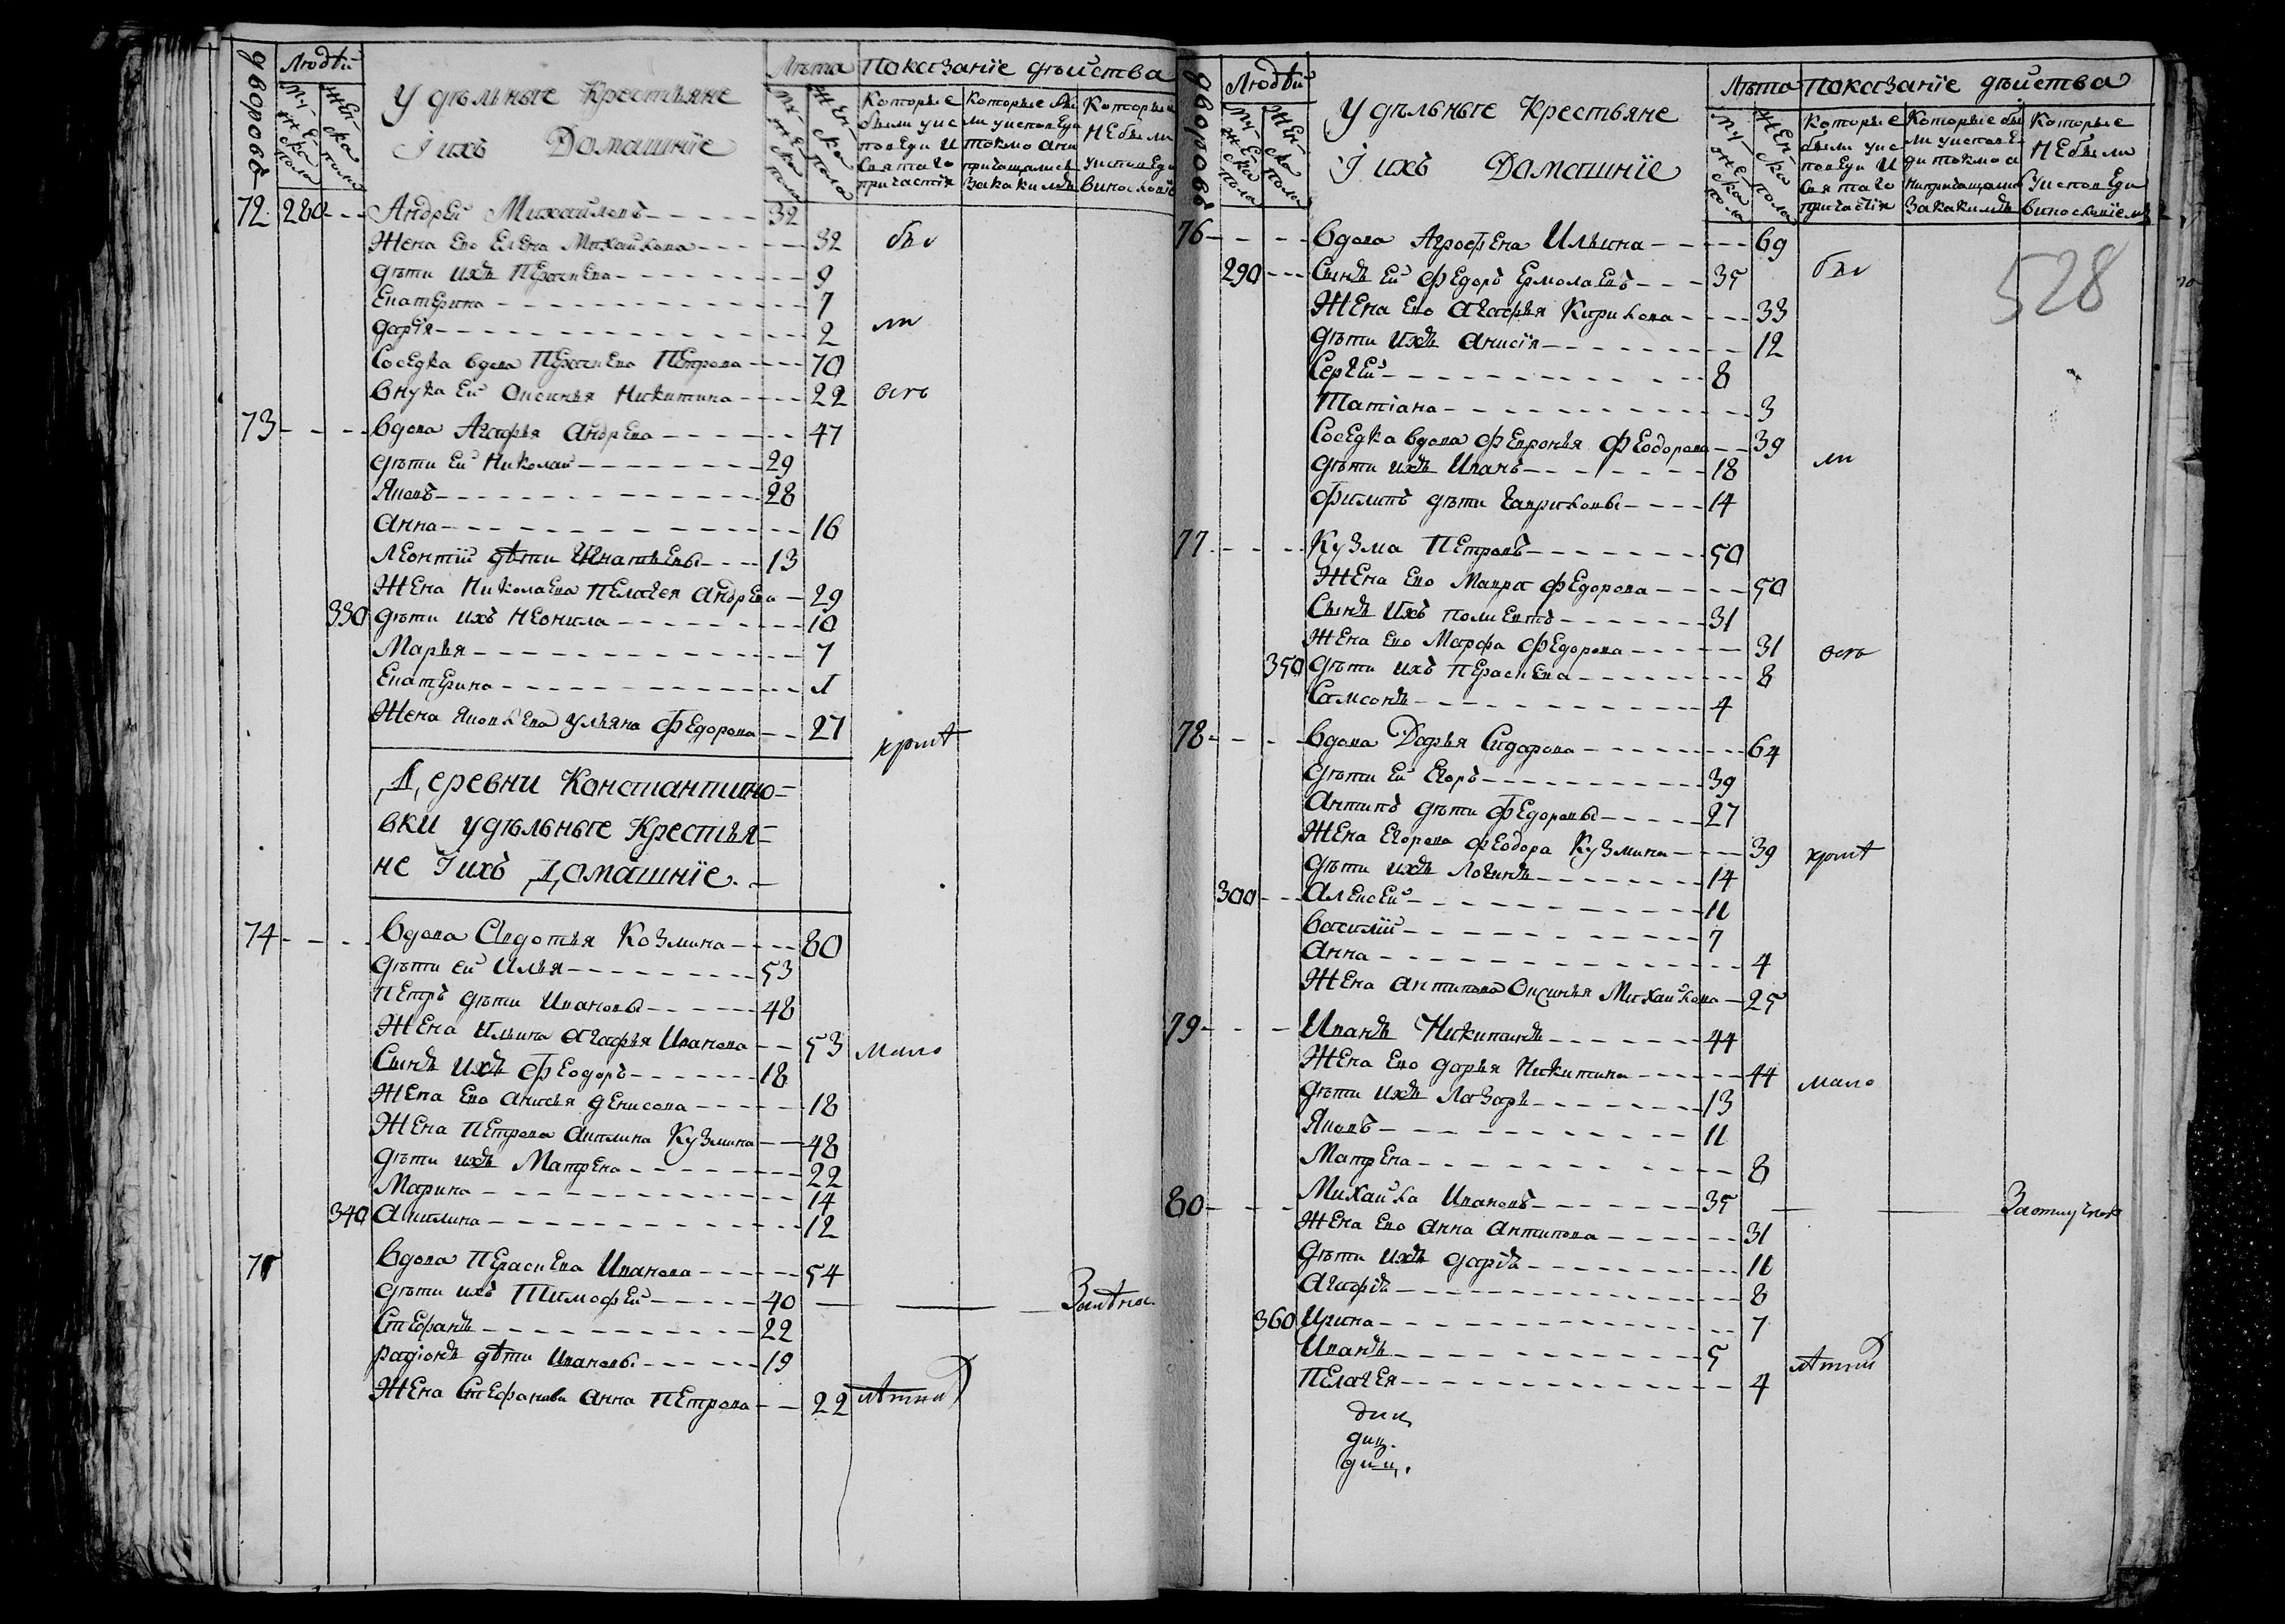 дворовъ
Людъй
му-жеска пола
жен-ска пола
удѣльныѣ Крестьяне
Јихъ Домашнїе
Лѣта
му-жеска пола
жен-ска пола
Показанїе дѣйства
Которые были уисповѣди и святаго причастїя
Которые бы ли уисповеди токмо а ни причащались
Которыи небыли уисповеди
72 280 Андрей Михайловъ 32
Жена ево Елена Михайлова 32 бы
дѣти ихъ Перасковя 9
Екатерина 7
дарїя 2 ли
Соседка вдова Перасковя Петрова 70
внука ей Оксинья Никитина 22 всѣ
73 вдова Агафья андрева 47
дѣти ей Николай 29
Яковъ 28
анна 16
Леонтїй дѣти Игнатьевы 13
Жена Николаева Пелагея андрева 29
330 дѣти ихъ неонила 10
Марья 7
Екатерина 1
Жена Яковлева ульяна Федорова 27
кромѣ
Деревни Константино=
вки удѣльныѣ Крестья=
не Јихъ Домашнїе.
74 вдова Авдотья Козмина 80
дѣти ей Илья 53
Петръ дѣти Ивановы 48
Жена Ильина агафья Иванова 53 мало
Сынъ ихъ Феодоръ 18
Жена ево анисья денисова 18
Жена Петрова акилина Кузмина 48
дѣти ихъ Матрена 22
Марина 14
340 акилина 12
75 вдова Пераскева Иванова 54
дѣти ихъ Тимофей 40
Стефанъ 22
радїонъ дѣти Ивановы 19
Жена Стефанова анна Петрова 22 лѣтний
дворовъ
Людъй
му-жеска пола
жен-ска пола
удѣльныѣ Крестьяне
Јихъ Домашнїе
Лѣта
му-жеска пола
жен-ска пола
показанїе дѣйства
Которые были уисповеди и святаго причастїя
Которые бы ли уисповеди токмо а
Которые небыли уисповеди
528
76 вдова Агрофена Ильина 69
290 Сынъ ей Федоръ Ермолаевъ 35 бы
Жена ево агафья Кирилова 33
дѣти ихъ анисїя 12
Сергей 8
Татїана 3
Соседка вдова Февронья Феодорова 39
дѣти ихъ Иванъ 18 ли
Филипъ дѣти гавриловы 14
77 Кузма Петровъ 50
Жена ево Мавра Федорова 50
Сынъ ихъ полиектъ 31
Жена ево Марфа Федорова 31 всѣ
350 дѣти ихъ Пераскева 8
Самсонъ 4
78 вдова Дарья Сидорова 64
дѣти ей Егоръ 39
антипъ дѣти Федоровы 27
Жена Егорова Феодора Кузмина 39 кромѣ
дѣти ихъ Логинъ 14
300 алексей 11
василїй 7
анна 4
Жена антипова Оксинья Михайлова 25
79 Иванъ Никитинъ 44
Жена ево дарья Никитина 44 мало
дѣти ихъ Лазарь 13
Яковъ 11
Матрена 8
80 Михайла Ивановъ 35
Жена ево анна антипова 31
дѣти ихъ дарїя 11
агафїя 8
360 Ирина 7
Иванъ 5 лѣтний
Пелагея 4